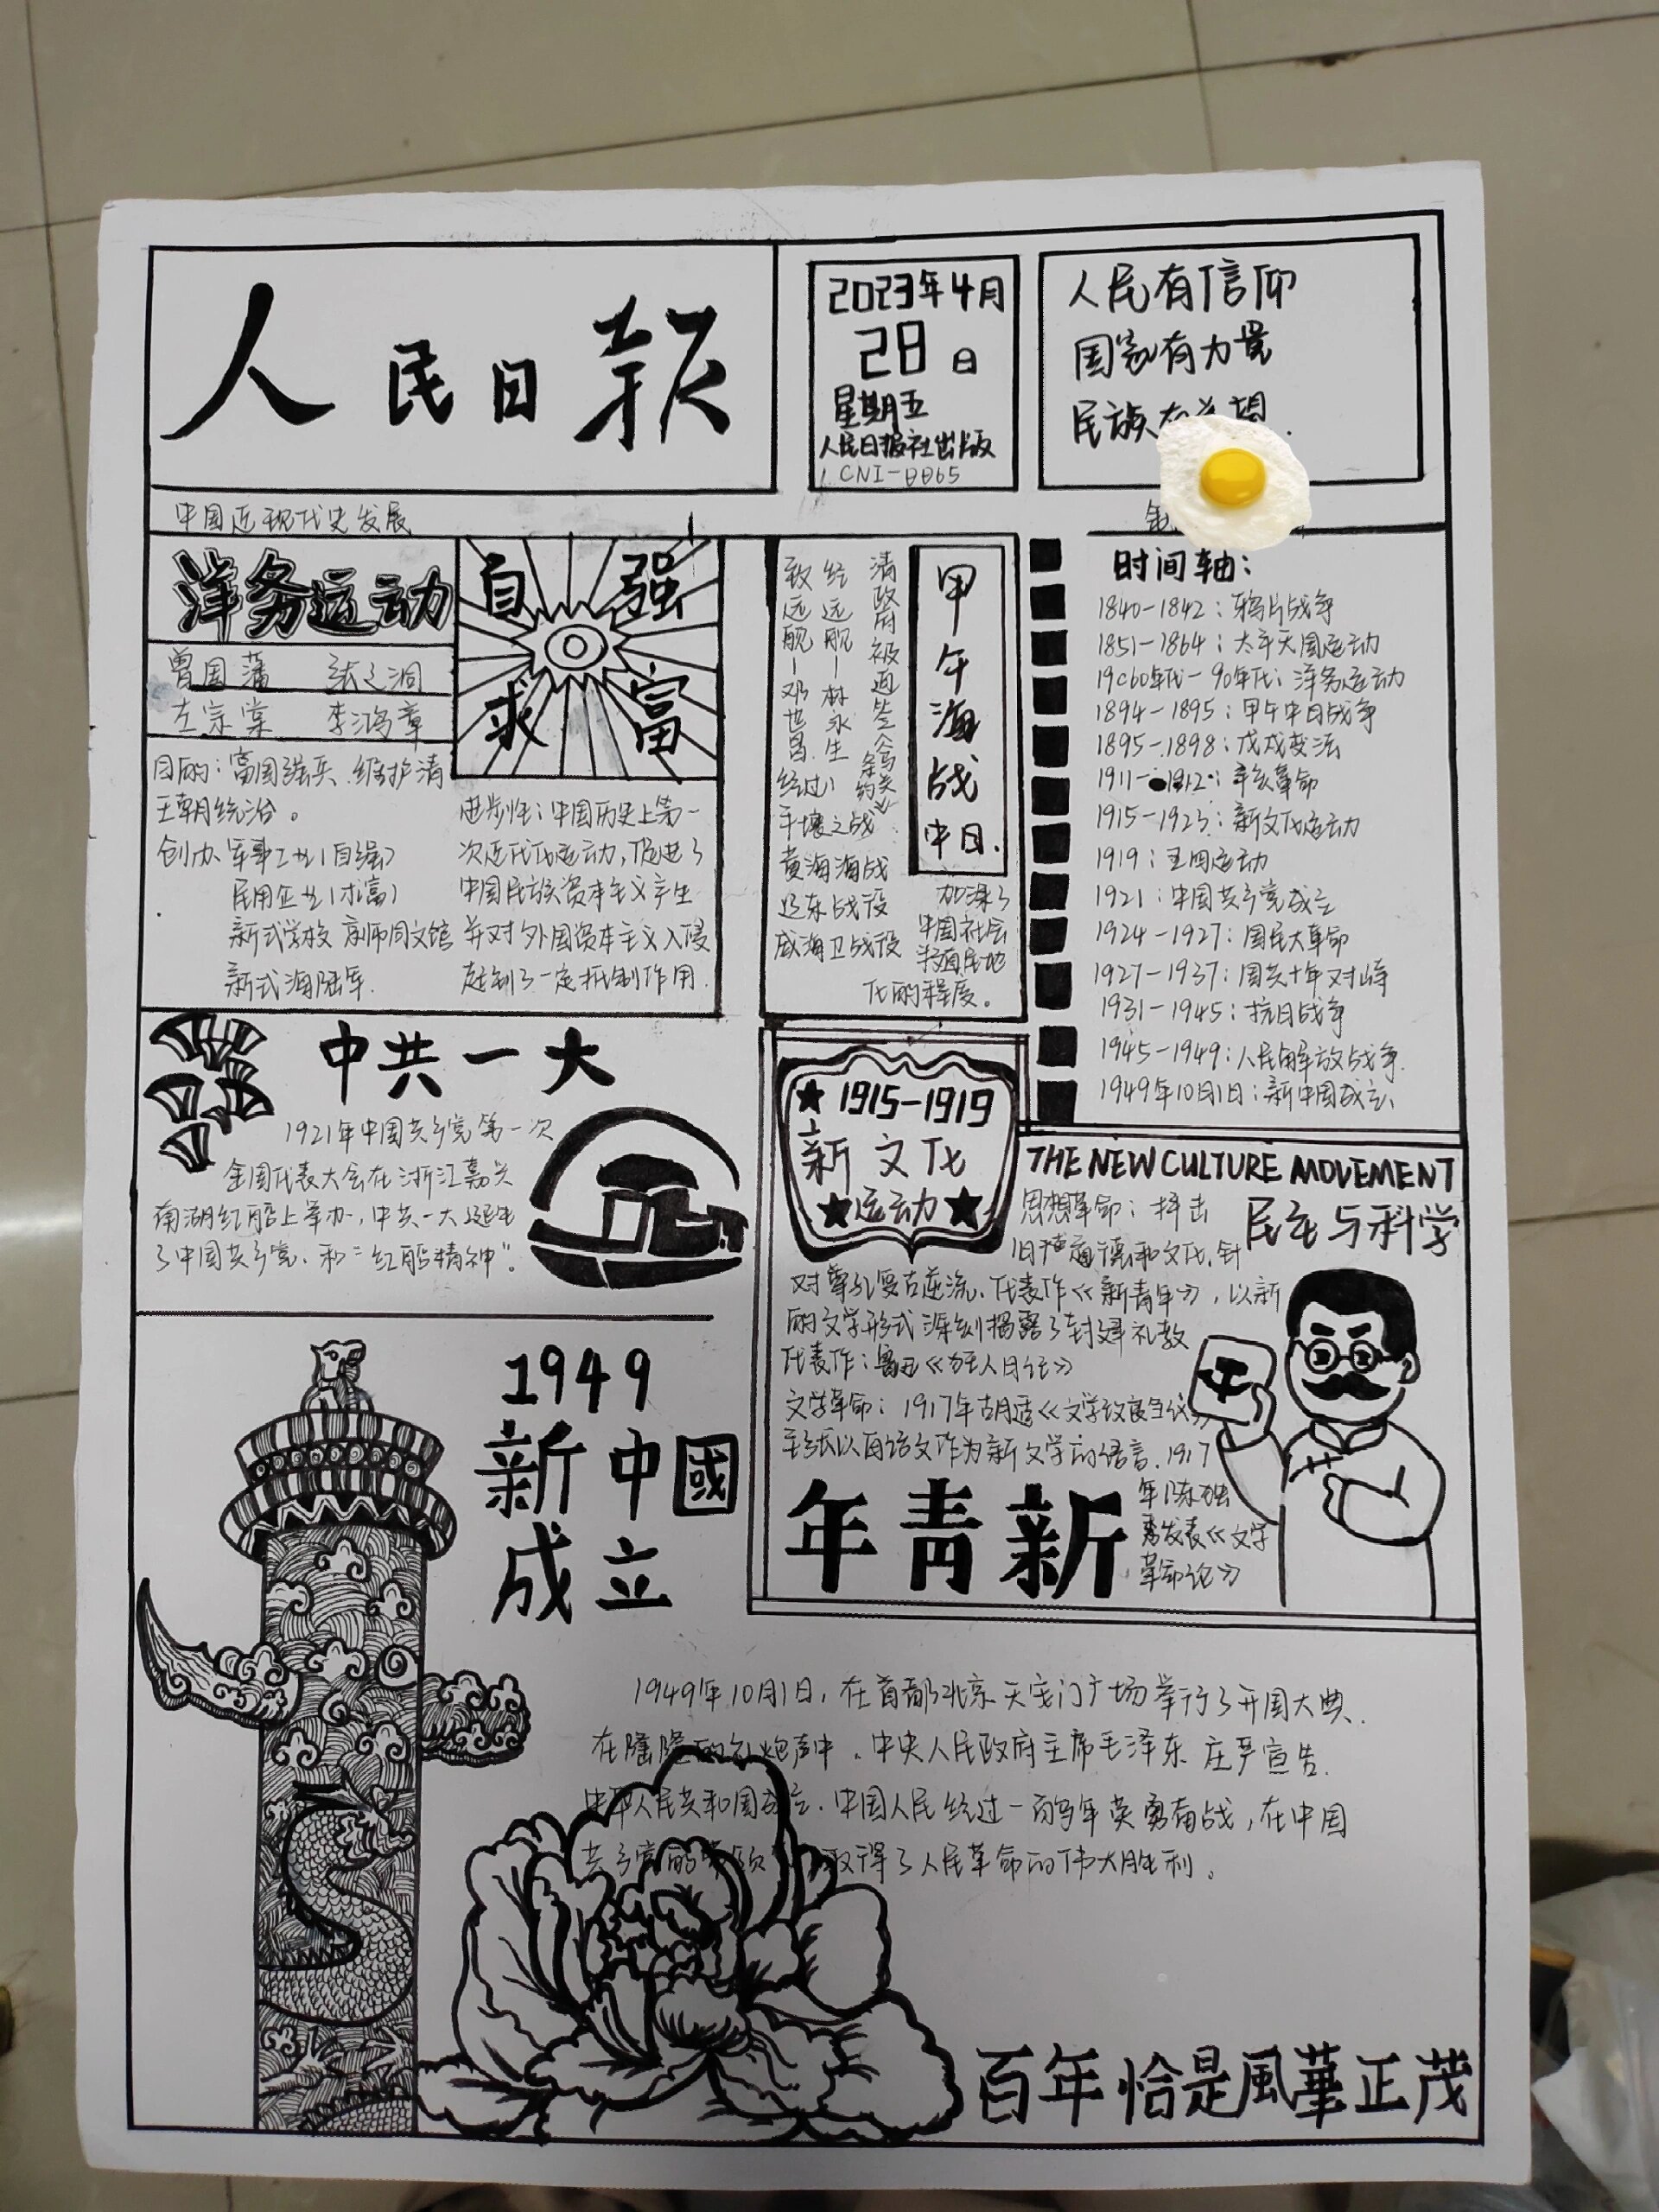 人民日报
2023年4月
28日
星期五
人民日报社出版
CN1-0065
人民有信仰
国家有力量
民族有希望
中国近现代史发展
洋务运动
自强
求富
曾国藩 张之洞
左宗棠 李鸿章
目的：富国强兵、维护清
王朝统治。
创办：军事工业（自强）
民用企业（求富）
新式学校 京师同文馆
新式海陆军.
进步性：中国历史上第一
次近代化运动，促进了
中国民族资本主义产生
并对外国资本主义入侵
起到了一定抵制作用.
甲午海战
中日.
清政府被迫签《马关
条约》
经远舰－林永生
致远舰－邓世昌
经过：
平壤之战
黄海海战
辽东战役
威海卫战役
加深了
中国社会
半殖民地
化的程度。
时间轴：
1840-1842：鸦片战争
1851-1864：太平天国运动
19c60年代-90年代：洋务运动
1894-1895：甲午中日战争
1895-1898：戊戌变法
1911-1912：辛亥革命
1915-1923：新文化运动
1919：五四运动
1921：中国共产党成立
1924-1927：国民大革命
1927-1937：国共十年对峙
1931-1945：抗日战争
1945-1949：人民解放战争.
1949年10月1日：新中国成立
中共一大
1921年中国共产党第一次
全国代表大会在浙江嘉兴
南湖红船上举办，中共一大诞生
了中国共产党、和“红船精神”。
1915-1919
新文化
运动
THE NEW CULTURE MOVEMENT
民主与科学
思想革命：抨击
旧道德和文化.针
对尊孔复古逆流.代表作《新青年》，以新
的文学形式深刻揭露了封建礼教
代表作：鲁迅《狂人日记》
文学革命：1917年胡适《文学改良刍议》
主张以白话文作为新文学的语言.1917
年陈独
秀发表《文学
革命论》
年青新
1949
新中國
成立
1949年10月1日，在首都北京天安门广场举行了开国大典.
在隆隆的礼炮声中，中央人民政府主席毛泽东庄严宣告.
中华人民共和国成立.中国人民经过一百多年英勇奋战，在中国
共产党的带领下取得了人民革命的伟大胜利。
百年恰是風華正茂